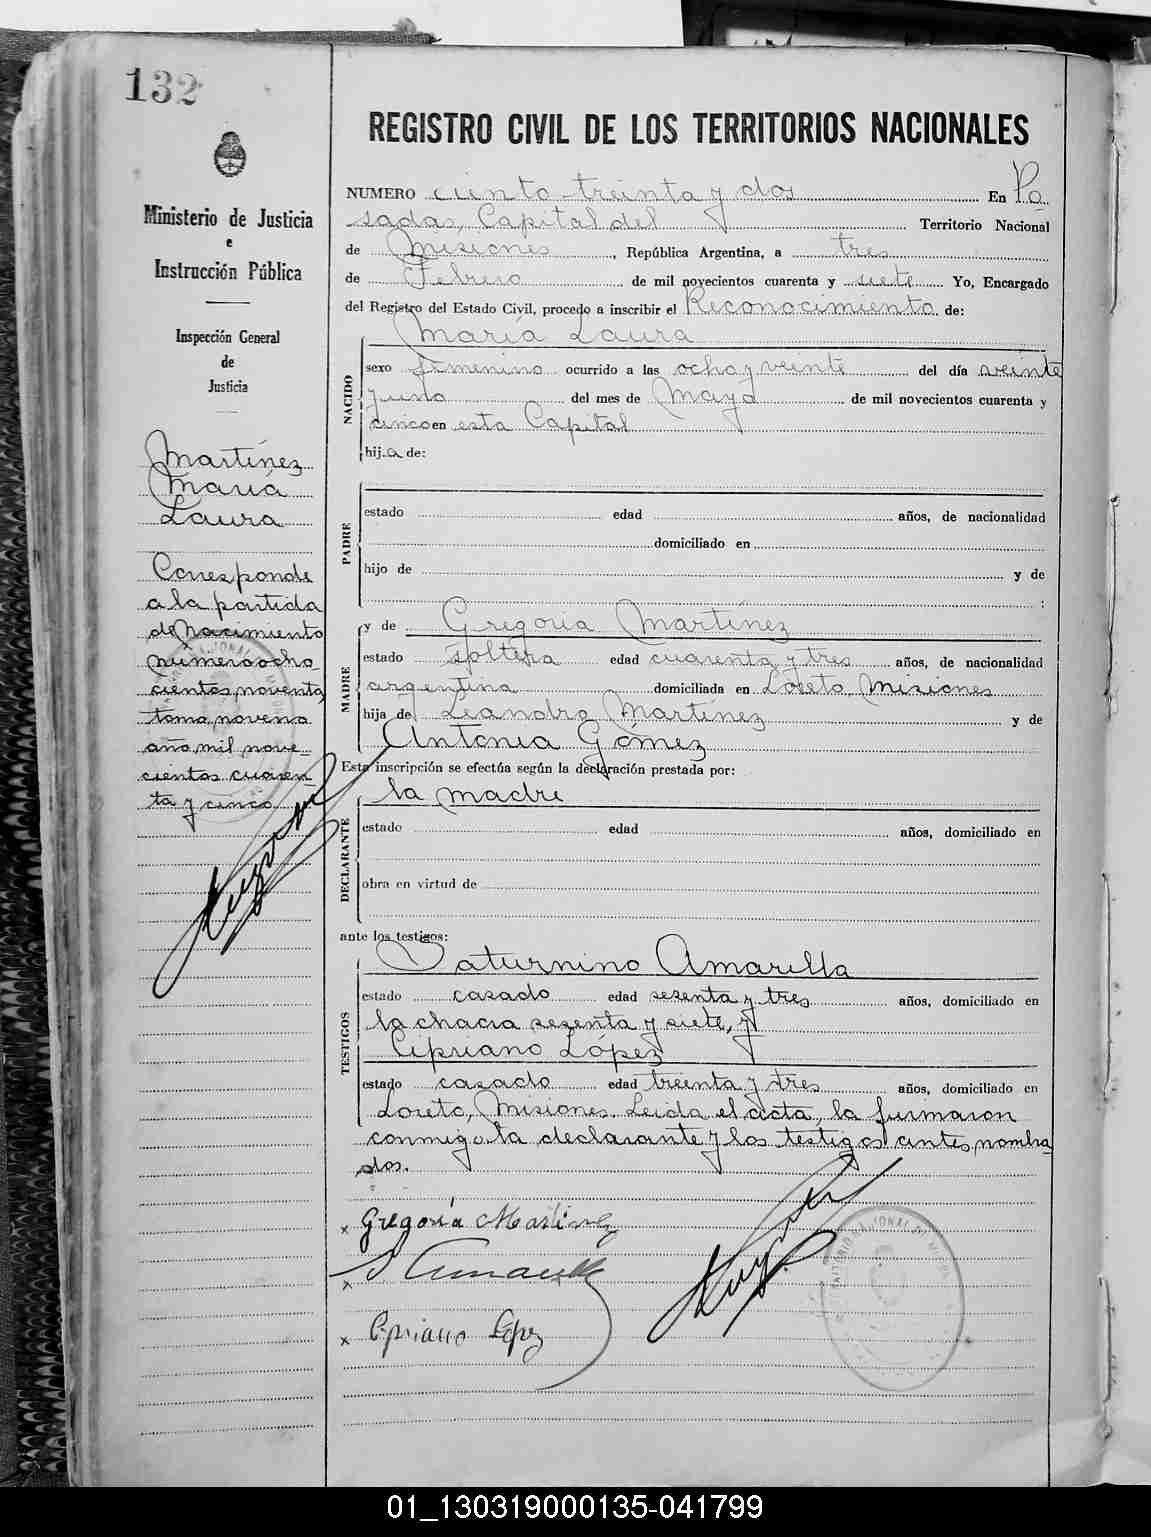 132
Ministerio de Justicia
e
Instrucción Pública
Inspección General
de
Justicia
Martínez
María
Laura
Corresponde
a la partida
de nacimiento
número ocho-
cientos noventa,
tomo noveno
año mil nove-
cientos cuaren-
ta y cinco
REGISTRO CIVIL DE LOS TERRITORIOS NACIONALES
NUMERO ciento treinta y dos En Po
sadas, Capital del Territorio Nacional
de Misiones, República Argentina, a tres
de Febrero de mil novecientos cuarenta y siete Yo, Encargado
del Registro del Estado Civil, procedo a inscribir el Reconocimiento de:
María Laura
NACIDO
sexo femenino ocurrido a las ocho y veinte del día veinte
y uno del mes de Mayo de mil novecientos cuarenta y
cinco en esta Capital
hija de:
PADRE
estado edad años, de nacionalidad
domiciliado en
hijo de y de
:
MADRE
y de Gregoria Martínez
estado soltera edad cuarenta y tres años, de nacionalidad
argentina domiciliada en Loreto, Misiones
hija de Leandro Martínez y de
Antonia Gómez
Esta inscripción se efectúa según la declaración prestada por:
la madre
DECLARANTE
estado edad años, domiciliado en
obra en virtud de
ante los testigos:
Saturnino Amarilla
TESTIGOS
estado casado edad sesenta y tres años, domiciliado en
la chacra sesenta y siete, y
Cipriano López
estado casado edad treinta y tres años, domiciliado en
Loreto, Misiones. Leida el acta, la firmaron
conmigo la declarante y los testigos antes nombra
dos.
x Gregoria Martinez
x S Amarilla
x Cipriano López
01_130319000135-041799